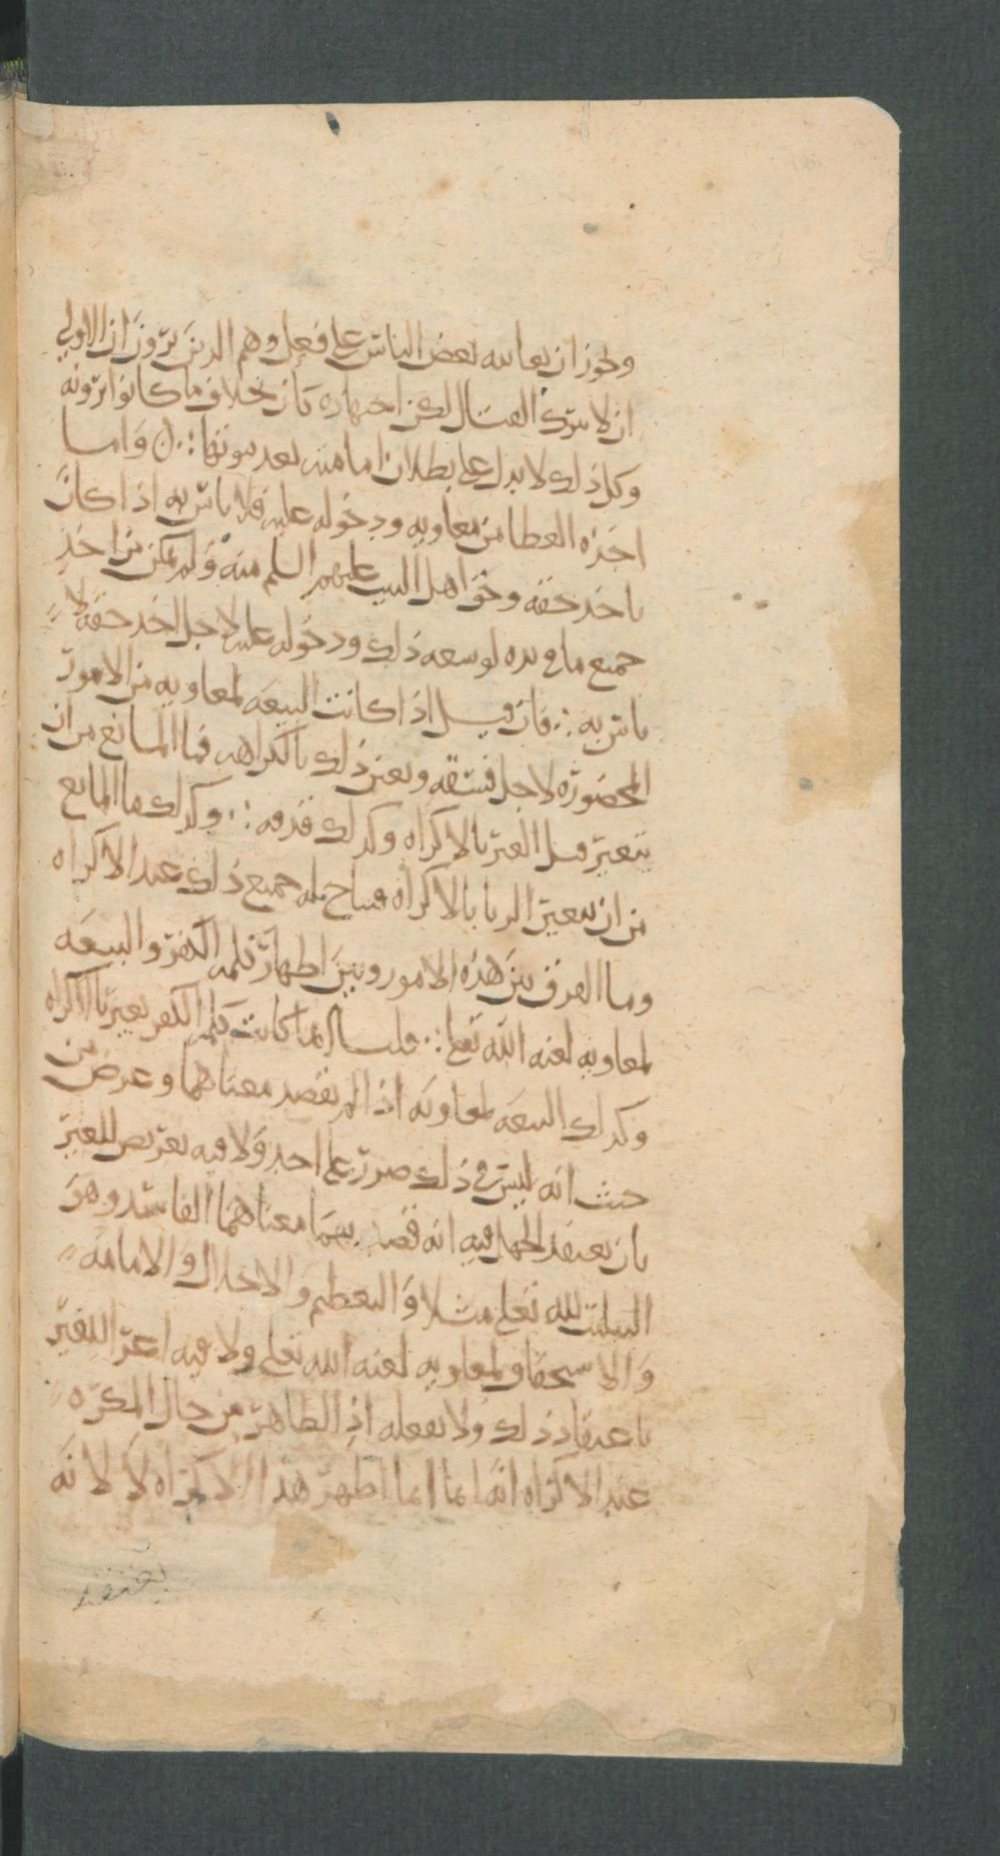 وتجوز ان يعاتبه بعض الناس على فعله وهم الذين يرون ان الاولى
ان لا يترك القتال لكن اجتهاده بان بخلاف ما كانوا يرونه
وكل ذلك لا يدل على بطلان امامته بعد ثبوتها ∴ ن واما
اخذه العطا من معاويه ودخوله عليه فلا باس به اذا كان
ياخذ حقه وحق اهل البيت عليهم السلم منه ولم يمكن من اخذ
جميع ما في يده لوسعه ذلك ودخوله عليه لاجل اخذ حقه لا
باس به ∴ فان قيل اذا كانت البيعه لمعاويه من الامور
المحضوره لاجل فسقه وتعين ذلك بالاكراه فما المانع من ان
يتعين قتل الغير بالاكراه وكذلك قذفه ∴ وكذلك ما المانع
من ان يتعين الزنا بالاكراه فيباح له جميع ذلك عند الاكراه
وما الفرق بين هذه الامور وبين اظهار كلمه الكفر والبيعه
لمعاويه لعنه الله تعلى ∴ قلنا انما كانت كلمه الكفر تعين بالاكراه
وكذلك البيعه لمعاويه اذا لم يقصد معناهما وعرض من
حيث انه ليس في ذلك ضرر على احد ولا فيه تعريض للغير
بان يعتقد الجهل فيه انه قصد بهما معناهما الفاسد وهو
التثليث لله تعلى مثلا والتعظيم والاجلال والامامه
والاستحقاق لمعاويه لعنه الله تعلى ولا فيه اغرا للغير
باعتقاد ذلك ولا بفعله اذ الظاهر من حال المكره
عند الاكراه انه انما اظهر هذا للاكراه لا لانه
يعتقد